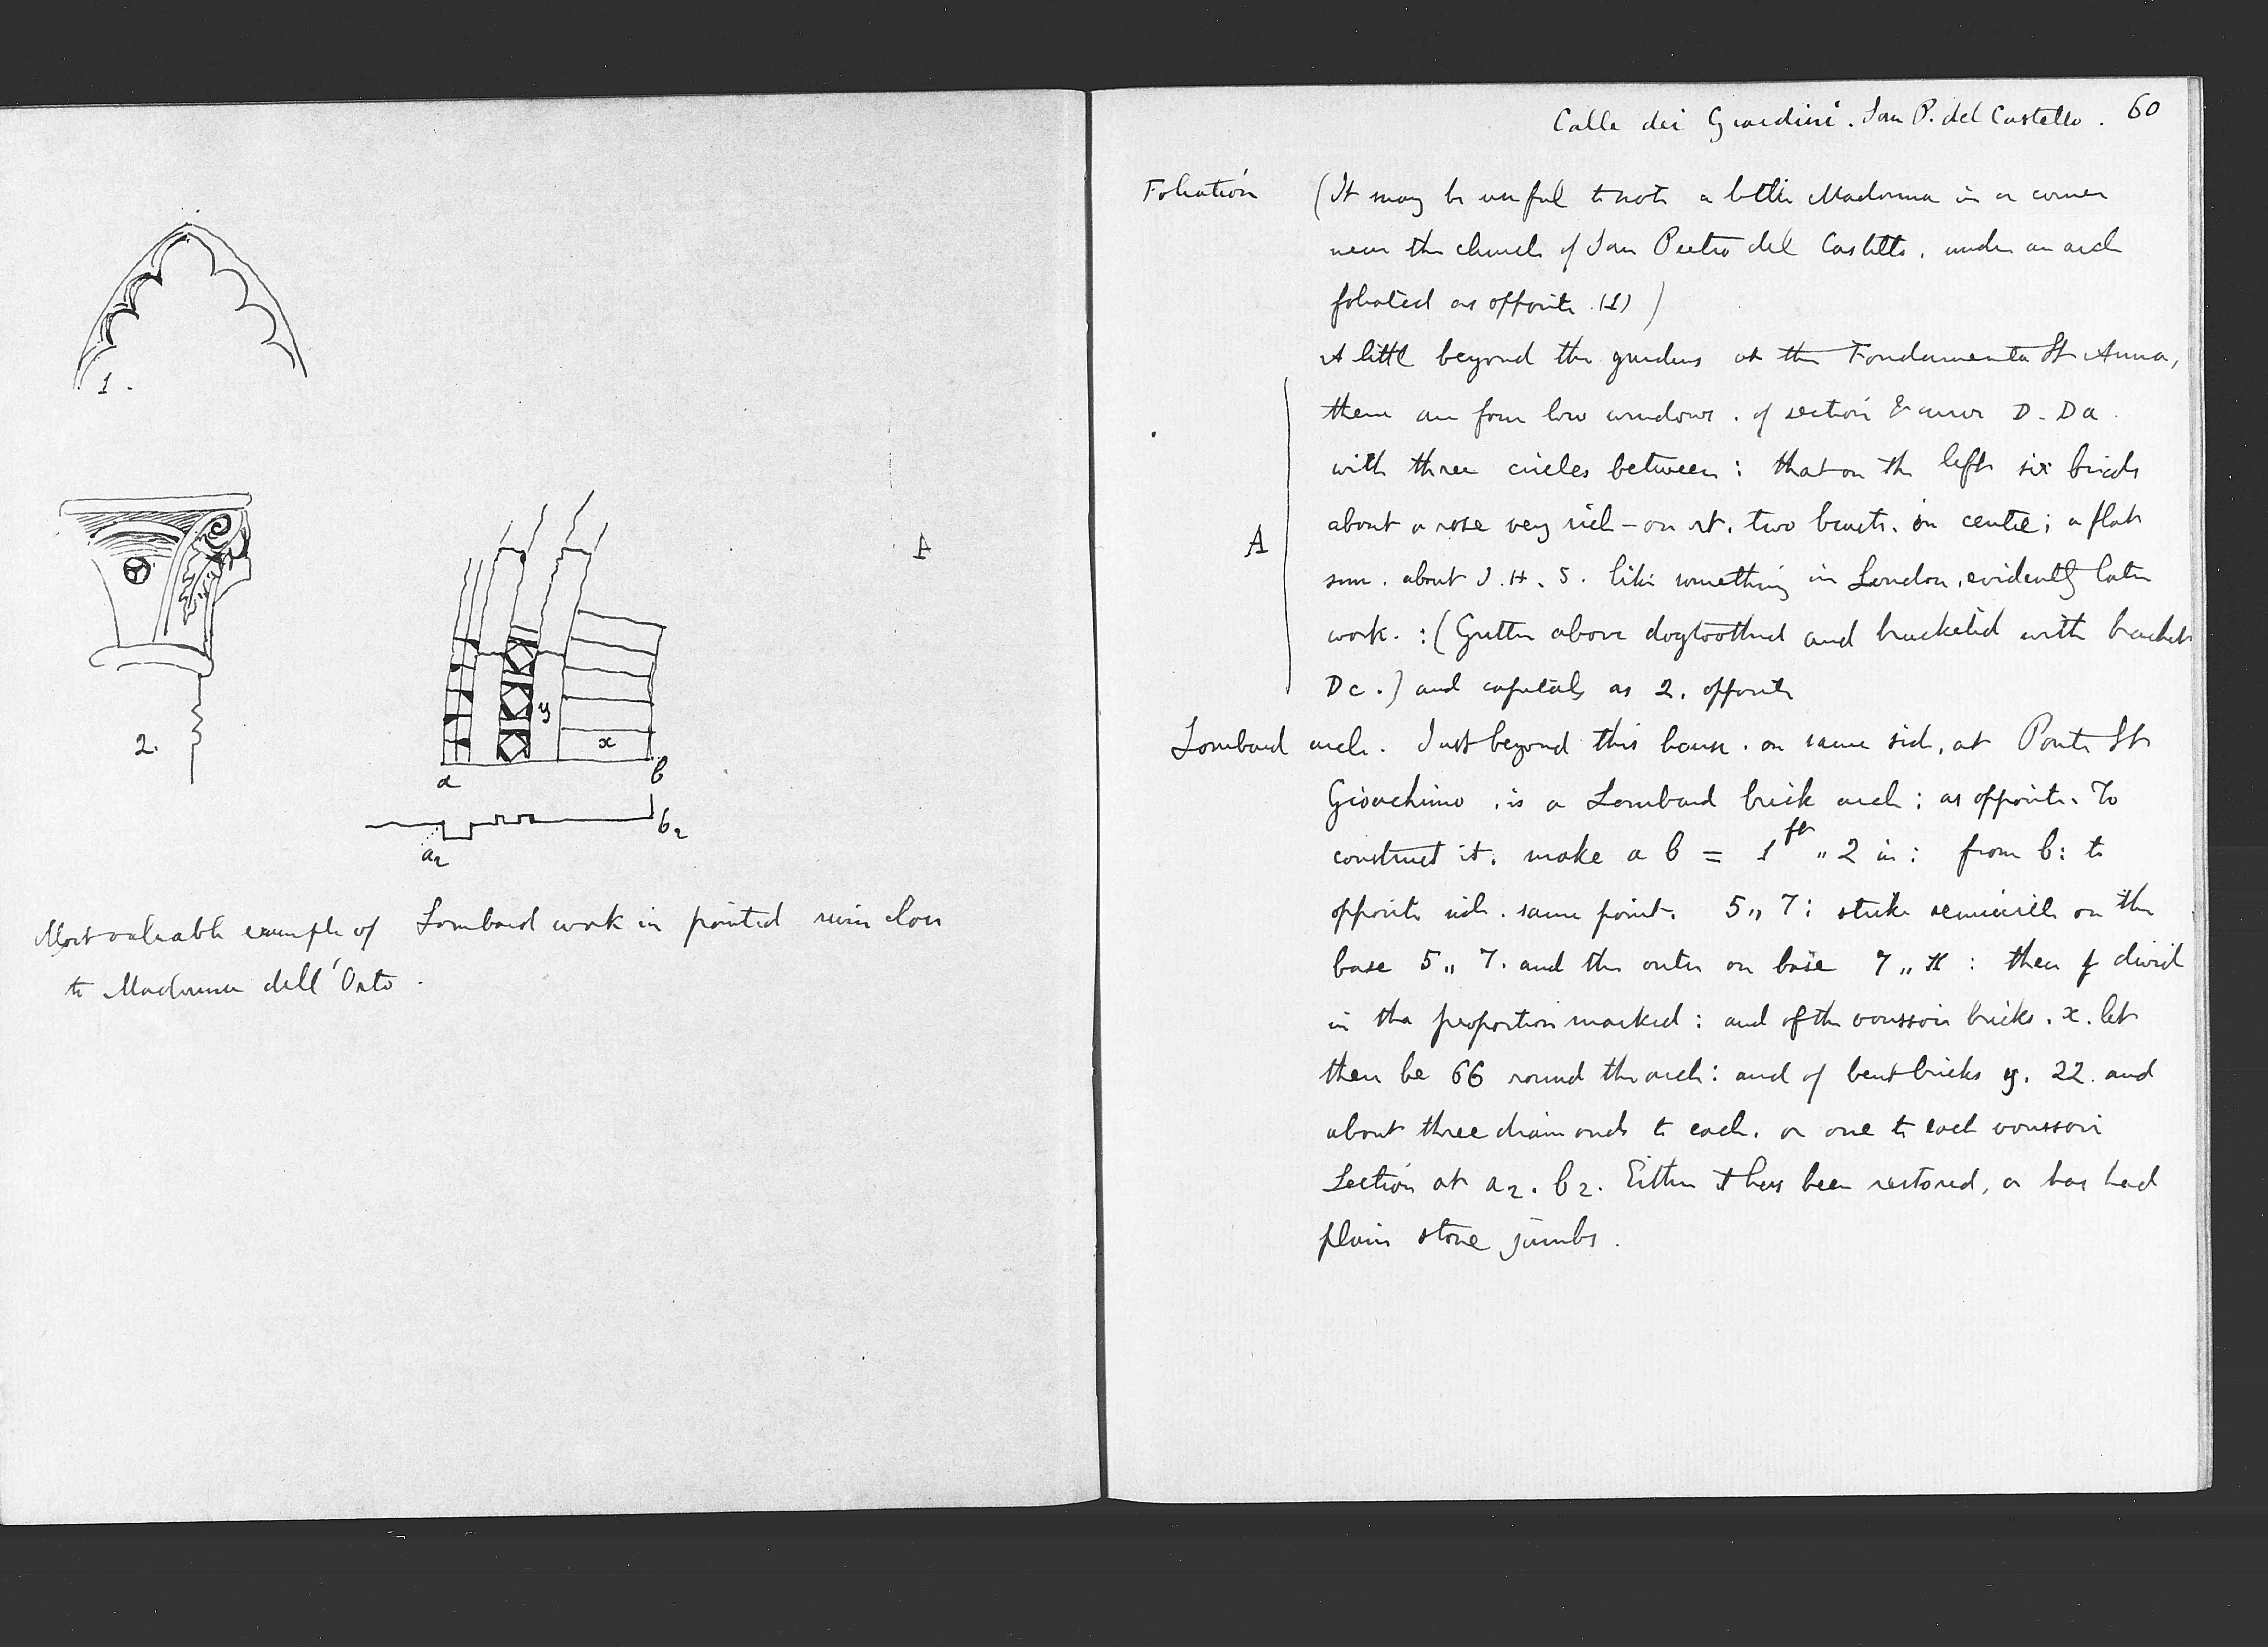 1.
A
2.
y
x
a
b
a2
b2
Most valuable example of Lombard work in pointed ruin close
to Madonna dell'Orto.
Calle dei Giardini. San P. del Castello. 60
Foliation (It may be useful to note a little Madonna in a corner
near the church of San Pietro del Castello, under an arch
foliated as opposite (1))
A little beyond the gardens at the Fondamenta St Anna,
there are four low windows. of section & D. Da
A
with three circles between: that on the left six birds
about a rose very rich - on rt. two beasts. in centre; a flat
sun. about I.H.S. like something in London, evidently later
work. : (Gutter above dogtoothed and bracketed with bracket
Dc.) and capitals as 2. opposite
Lombard arch. Just beyond this house. on same side, at Ponte St
Gioachimo, is a Lombard brick arch: as opposite. To
construct it. make a b = 1 ft „ 2 in: from b: to
opposite side. same point. 5 „ 7: strike semicircle on the
base 5 „ 7. and the outer on base 7 „ : then divide
in the proportion marked: and of the voussoir bricks. x. let
there be 66 round the arch: and of bent bricks y. 22. and
about three diamonds to each. or one to each voussoir
Section at a2. b2. Either it has been restored, or has had
plain stone jambs.